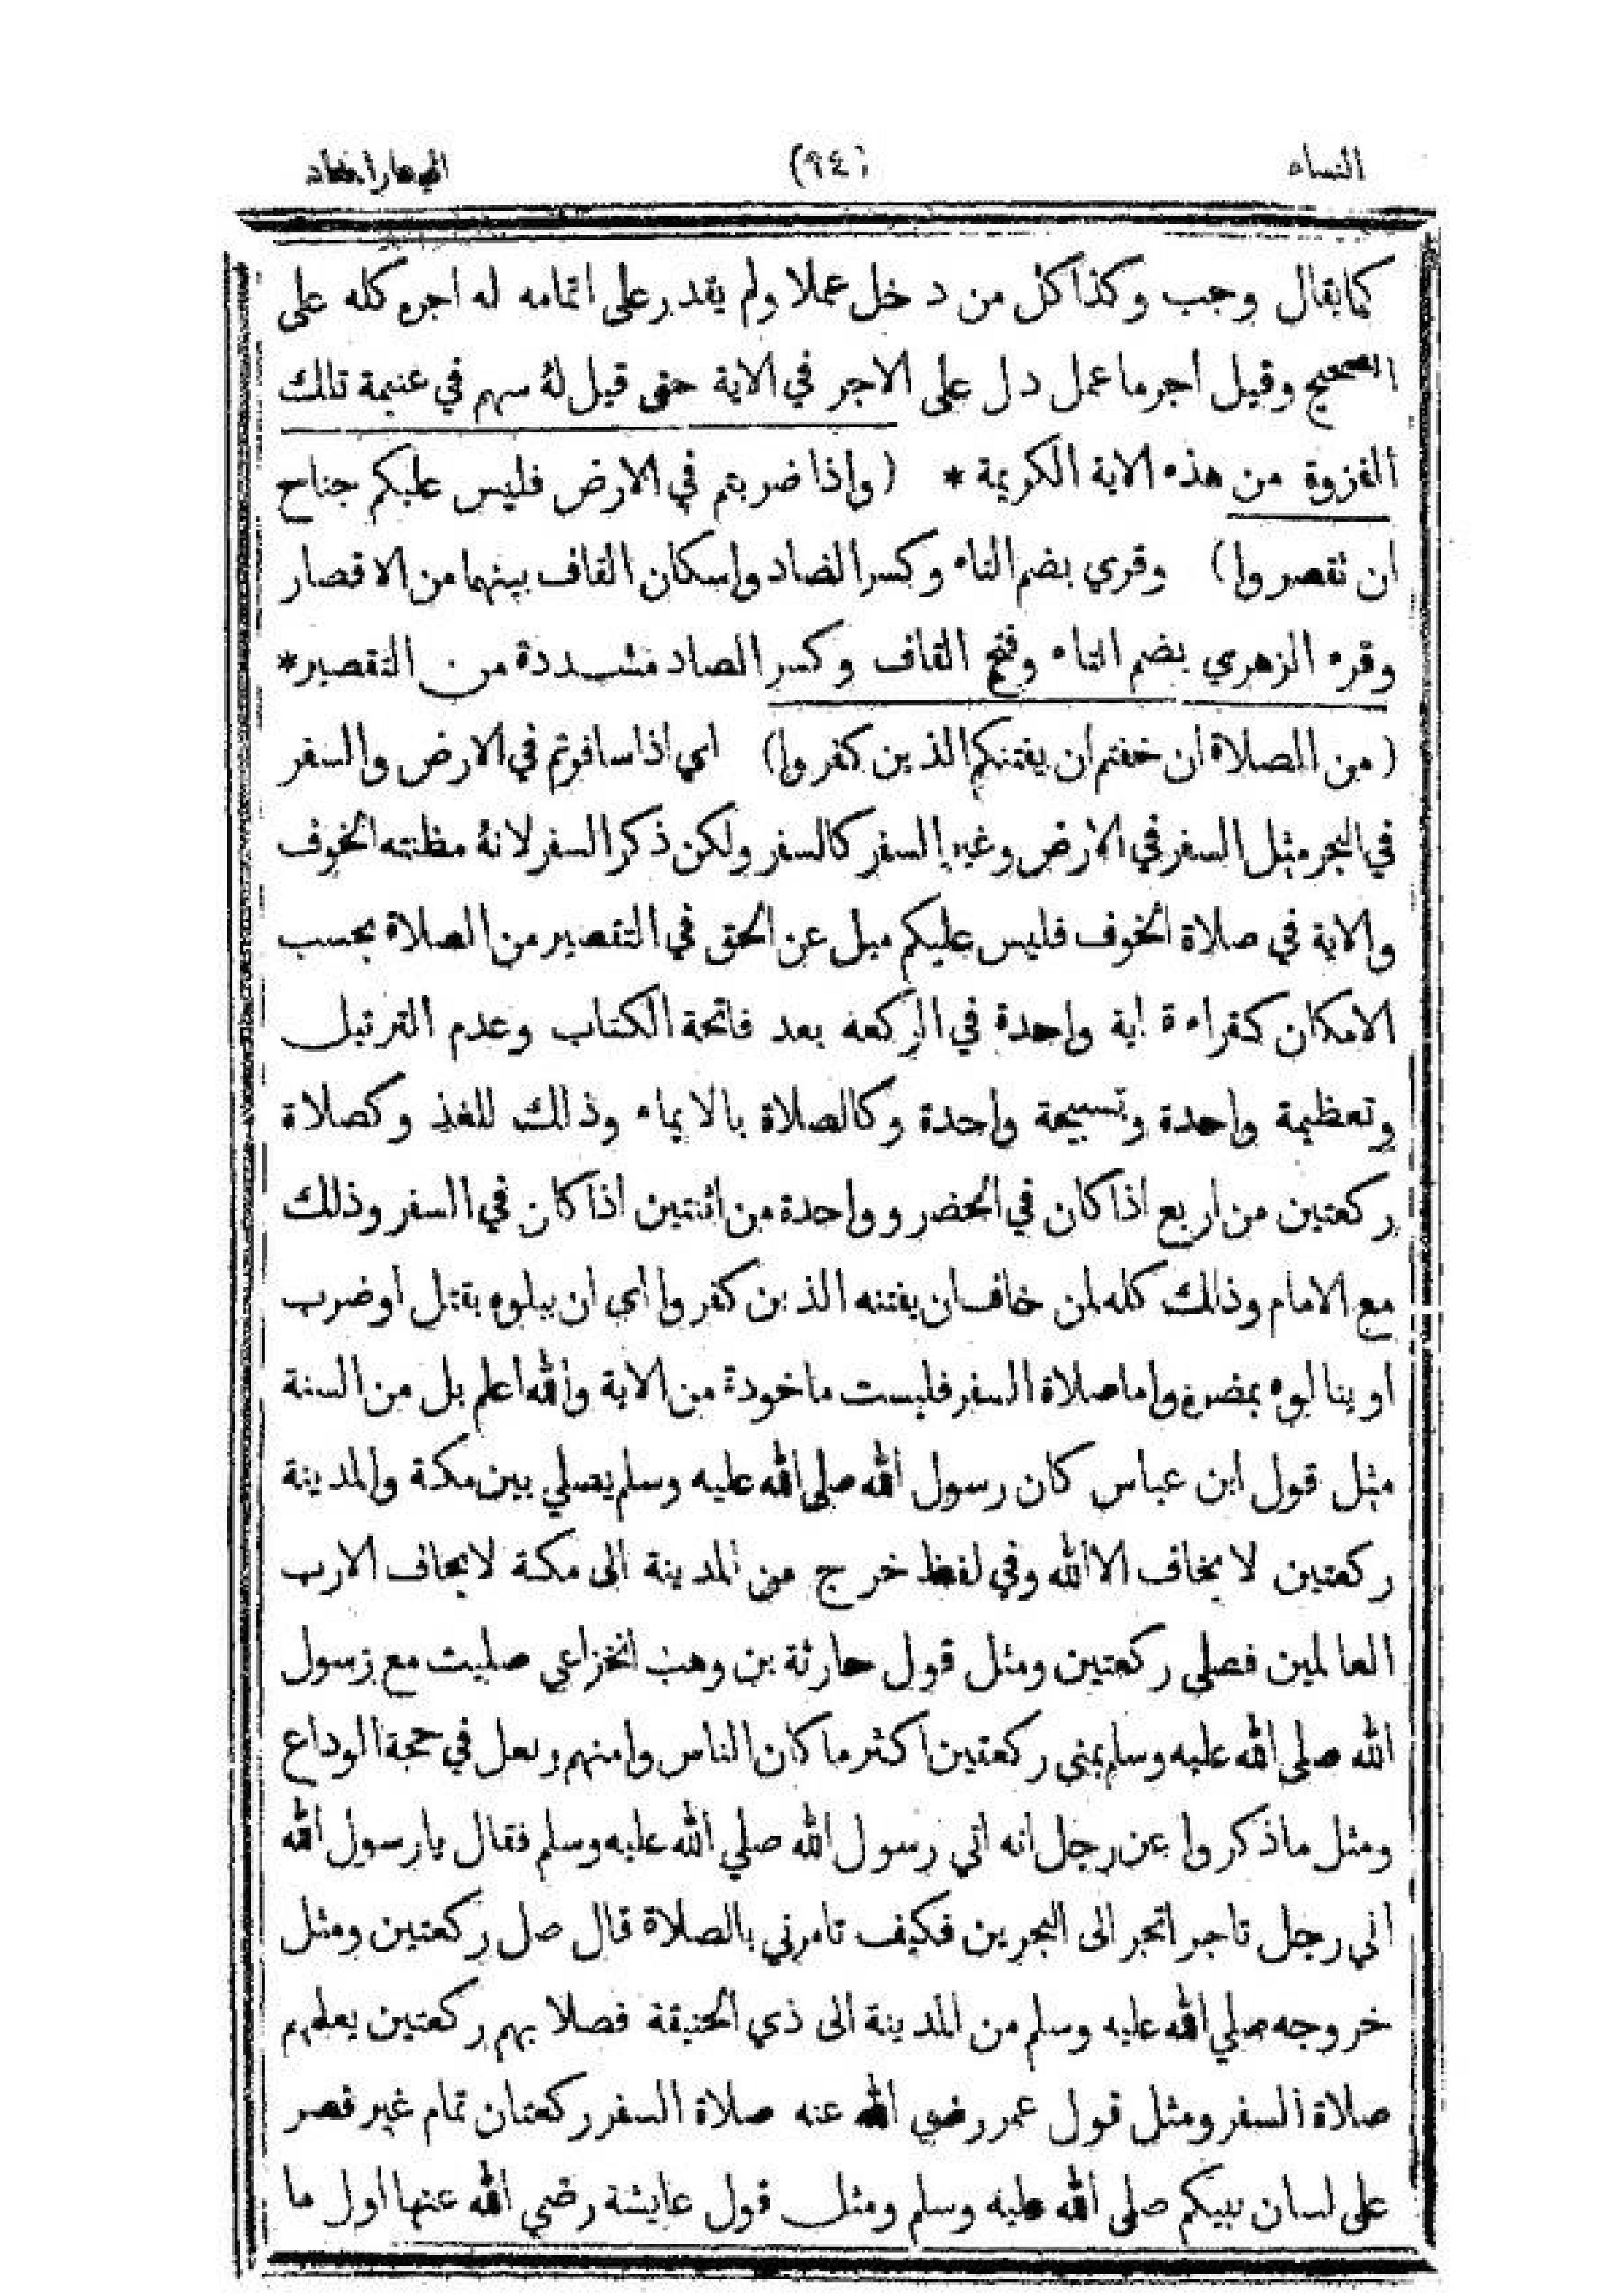 النساء (٩٤)
كمايقال وجب وكذاكل من دخل عملا ولم يقدرعلى اتمامه له اجره كله على
الصحيح وقيل اجرماعمل دل على الاجر في الاية حتى قيل لهُ سهم في غنيمة تلك
الغزوة من هذه الاية الكريمة * (واذاضربتم في الارض فليس عليكم جناح
ان تقصروا) وقري بضم التاء وكسرالضاد واسكان القاف بينهمامن الاقصار
وقره الزهري بضم التاء وفتح القاف وكسرالصاد مشددة من التقصير*
(من الصلاة ان خفتم ان يفتنكم الذين كفروا) اي اذاسافرتم في الارض والسفر
في البحر مثل السفر في الارض وغير السفر كالسفر ولكن ذكرالسفرلانهُ مظنته الخوف
والاية في صلاة الخوف فليس عليكم ميل عن الحق في التقصير من الصلاة بحسب
الامكان كقراءة اية واحدة في الركعة بعد فاتحة الكتاب وعدم الترتيل
وتعظيمة واحدة وتسبيحة واحدة وكالصلاة بالايماء وذلك للفذ وكصلاة
ركعتين من اربع اذاكان في الحضر وواحدة من اثنتين اذاكان في السفر وذلك
مع الامام وذلك كله لمن خاف ان يفتنه الذين كفروا اي ان يبلوه بقتل اوضرب
او ينالوه بمضرة واماصلاة السفر فليست ماخوذة من الاية والله اعلم بل من السنة
مثل قول ابن عباس كان رسول الله صلى الله عليه وسلم يصلي بين مكة والمدينة
ركعتين لا يخاف الا الله وفي لفظ خرج من المدينة الى مكة لايخاف الارب
العالمين فصلى ركعتين ومثل قول حارثة بن وهب الخزاعي صليت مع رسول
الله صلى الله عليه وسلم بمنى ركعتين اكثر ماكان الناس وامنهم ولعل في حجة الوداع
ومثل ماذكروا عن رجل انه اتي رسول الله صلي الله عليه وسلم فقال يارسول الله
اني رجل تاجر اتجر الى البحرين فكيف تامرني بالصلاة قال صل ركعتين ومثل
خروجه صلي الله عليه وسلم من المدينة الى ذي الحنيفة فصلا بهم ركعتين يعلمهم
صلاة السفر ومثل قول عمر رضي الله عنه صلاة السفر ركعتان تمام غير قصر
على لسان نبيكم صلى الله عليه وسلم ومثل قول عايشة رضي الله عنها اول ما